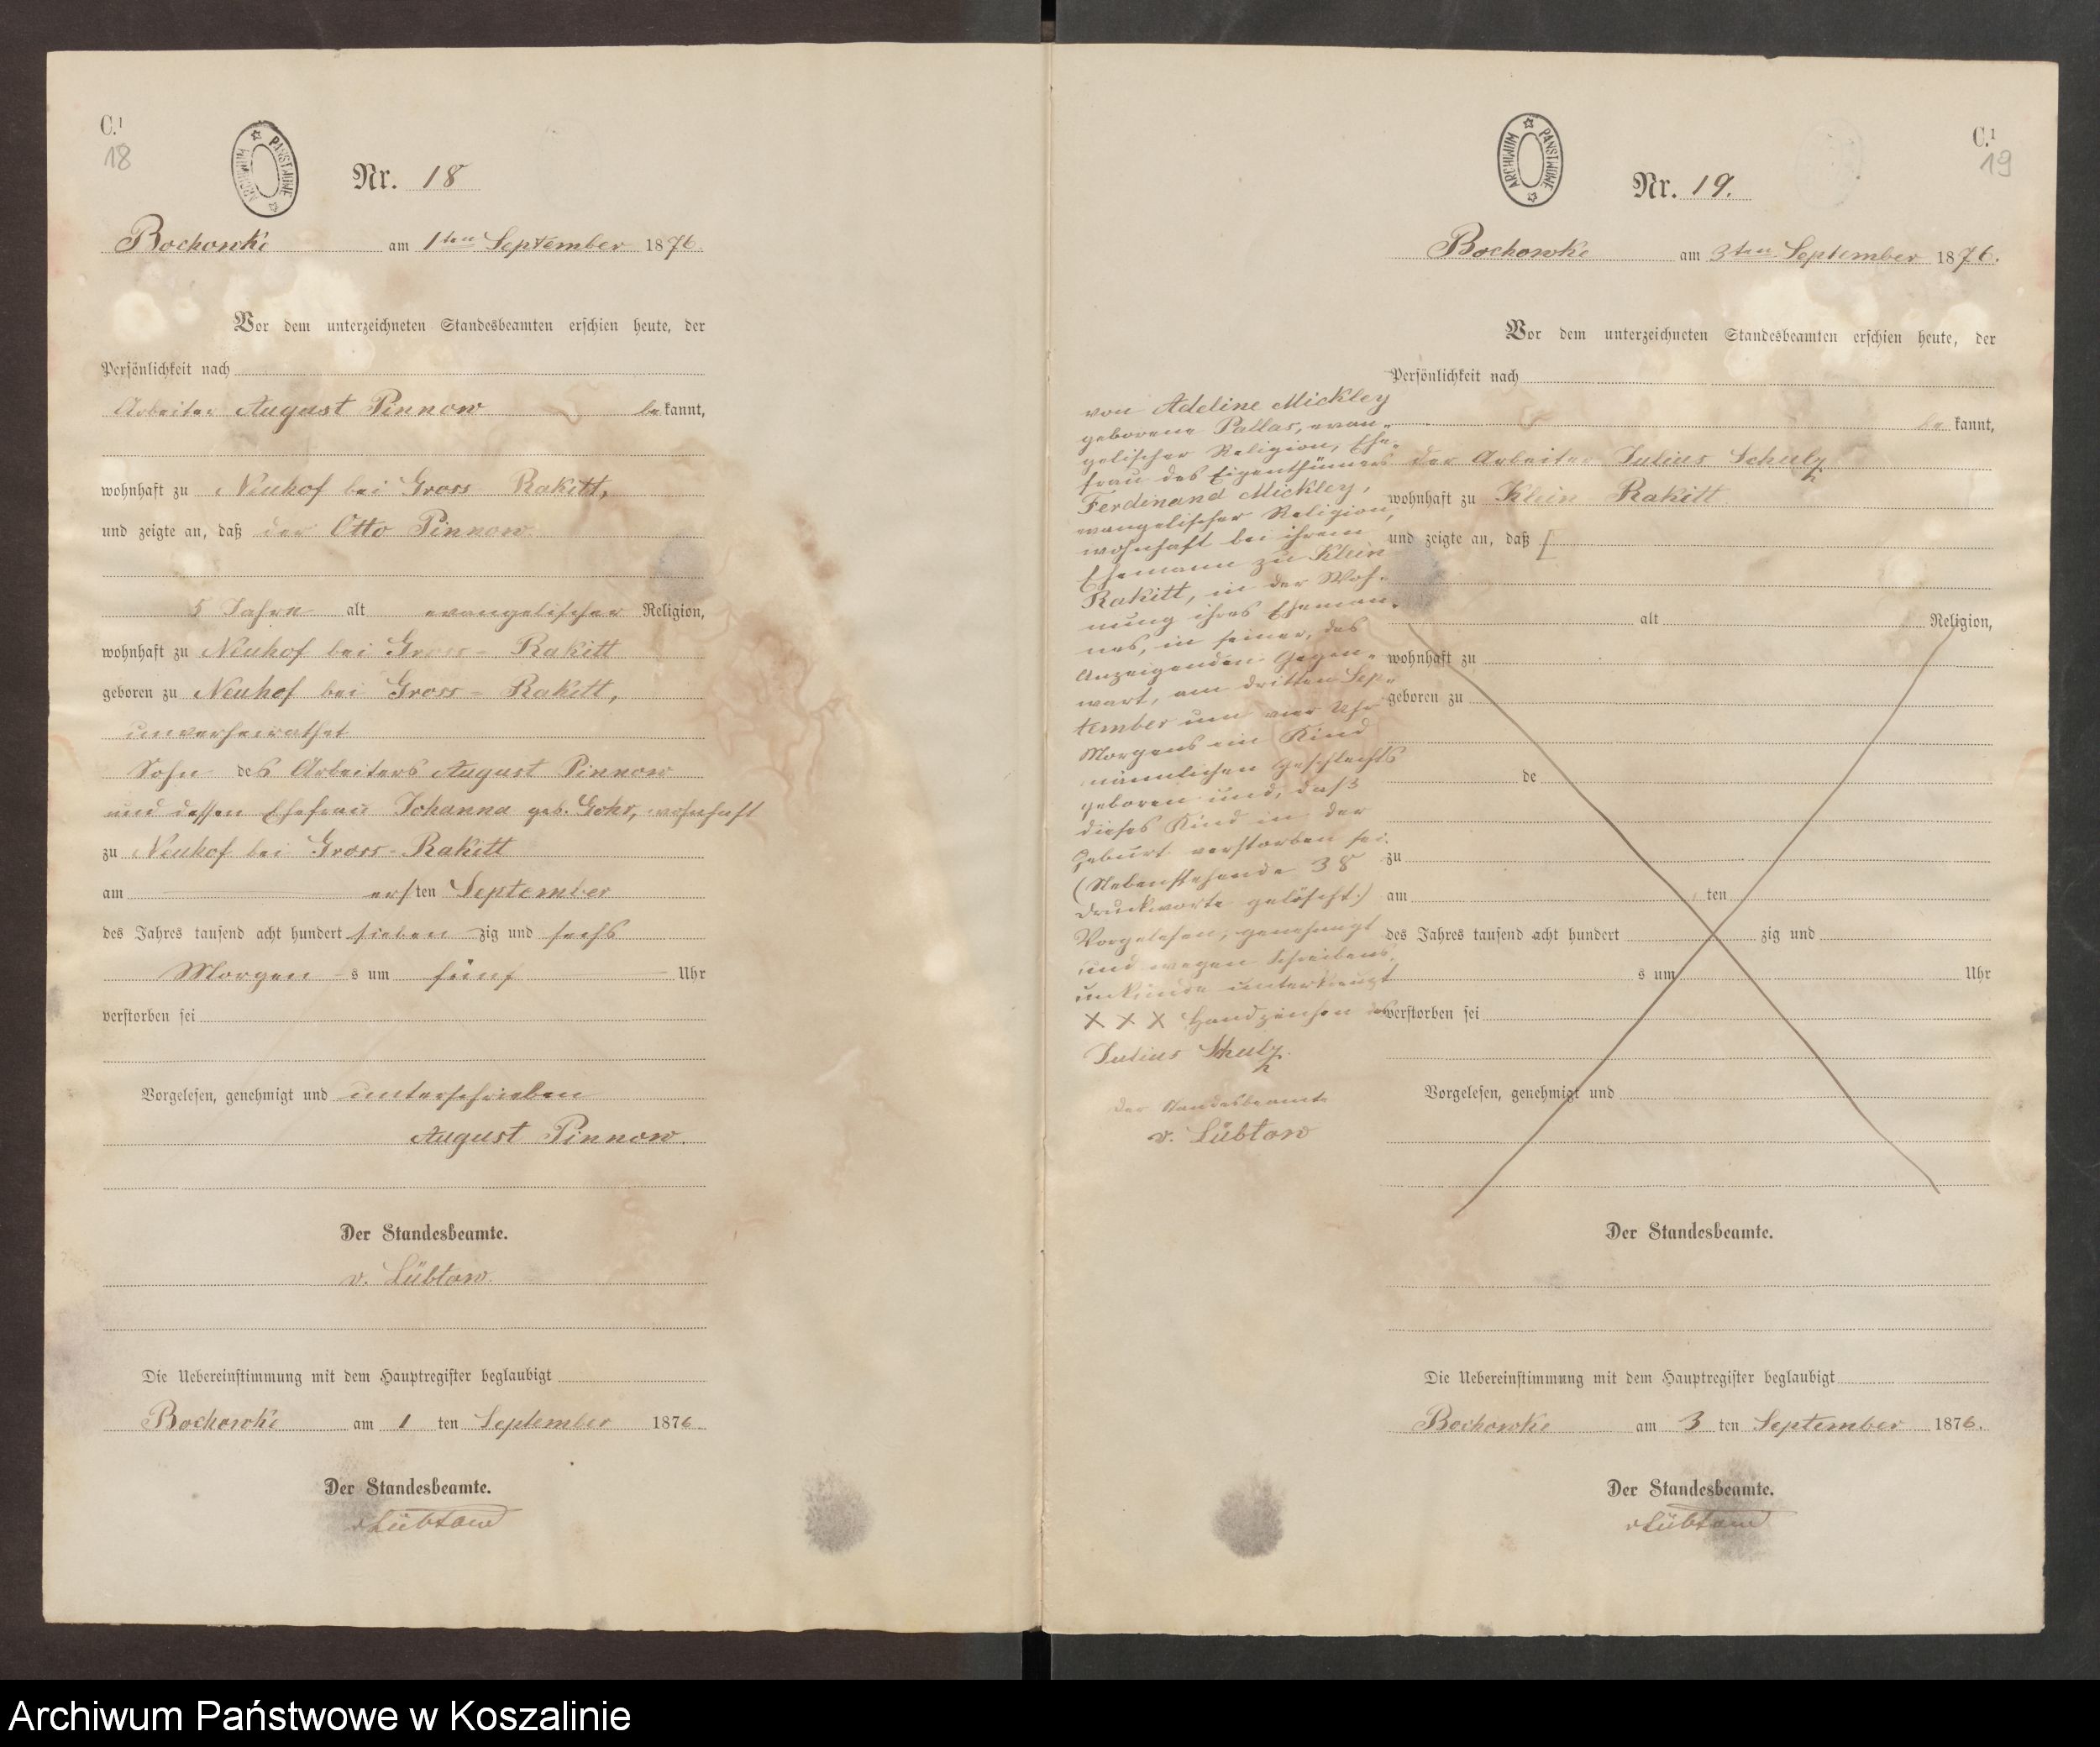 C.¹
18
ARCHIWUM PAŃSTWOWE
Nr. 18
Bochowke am 1ten September 1876.
Vor dem unterzeichneten Standesbeamten erschien heute, der
Persönlichkeit nach
Arbeiter August Pinnow bekannt,
wohnhaft zu Neuhof bei Gross Rakitt,
und zeigte an, daß der Otto Pinnow
5 Jahre alt evangelischer Religion,
wohnhaft zu Neuhof bei Gross-Rakitt
geboren zu Neuhof bei Gross-Rakitt,
unverheirathet
Sohn des Arbeiters August Pinnow
und dessen Ehefrau Johanna geb. Gohr, wohnhaft
zu Neuhof bei Gross-Rakitt
am ersten September
des Jahres tausend acht hundert sieben zig und sechs
Morgens um fünf Uhr
verstorben sei
Vorgelesen, genehmigt und unterschrieben
August Pinnow.
Der Standesbeamte.
v. Lübtow.
Die Uebereinstimmung mit dem Hauptregister beglaubigt
Bochowke am 1 ten September 1876
Der Standesbeamte.
vLübtow
C.¹
19
ARCHIWUM PAŃSTWOWE
Nr. 19.
Bochowke am 3ten September 1876.
Vor dem unterzeichneten Standesbeamten erschien heute, der
Persönlichkeit nach
bekannt,
der Arbeiter Julius Schulz
wohnhaft zu Klein Rakitt
und zeigte an, daß [
alt Religion,
wohnhaft zu
geboren zu
de
zu
am ten
des Jahres tausend acht hundert zig und
s um Uhr
verstorben sei
Vorgelesen, genehmigt und
von Adeline Mickley
geborene Pallas, evan-
gelischer Religion, Ehe-
frau des Eigenthümers
Ferdinand Mickley,
evangelischer Religion,
wohnhaft bei ihrem
Ehemann zu Klein
Rakitt, in der Woh-
nung ihres Eheman-
nes, in seiner, des
Anzeigenden Gegen-
wart, am dritten Sep-
tember um vier Uhr
Morgens ein Kind
männlichen Geschlechts
geboren und, daß
dieses Kind in der
Geburt verstorben sei.
(Nebenstehende 38
Druckworte gelöscht.)
Vorgelesen, genehmigt
und wegen Schreibens-
unkunde unterkreuzt
X X X Handzeichen des
Julius Schulz.
Der Standesbeamte
v. Lübtow
Der Standesbeamte.
Die Uebereinstimmung mit dem Hauptregister beglaubigt
Bochowke am 3 ten September 1876.
Der Standesbeamte.
vLübtow
Archiwum Państwowe w Koszalinie